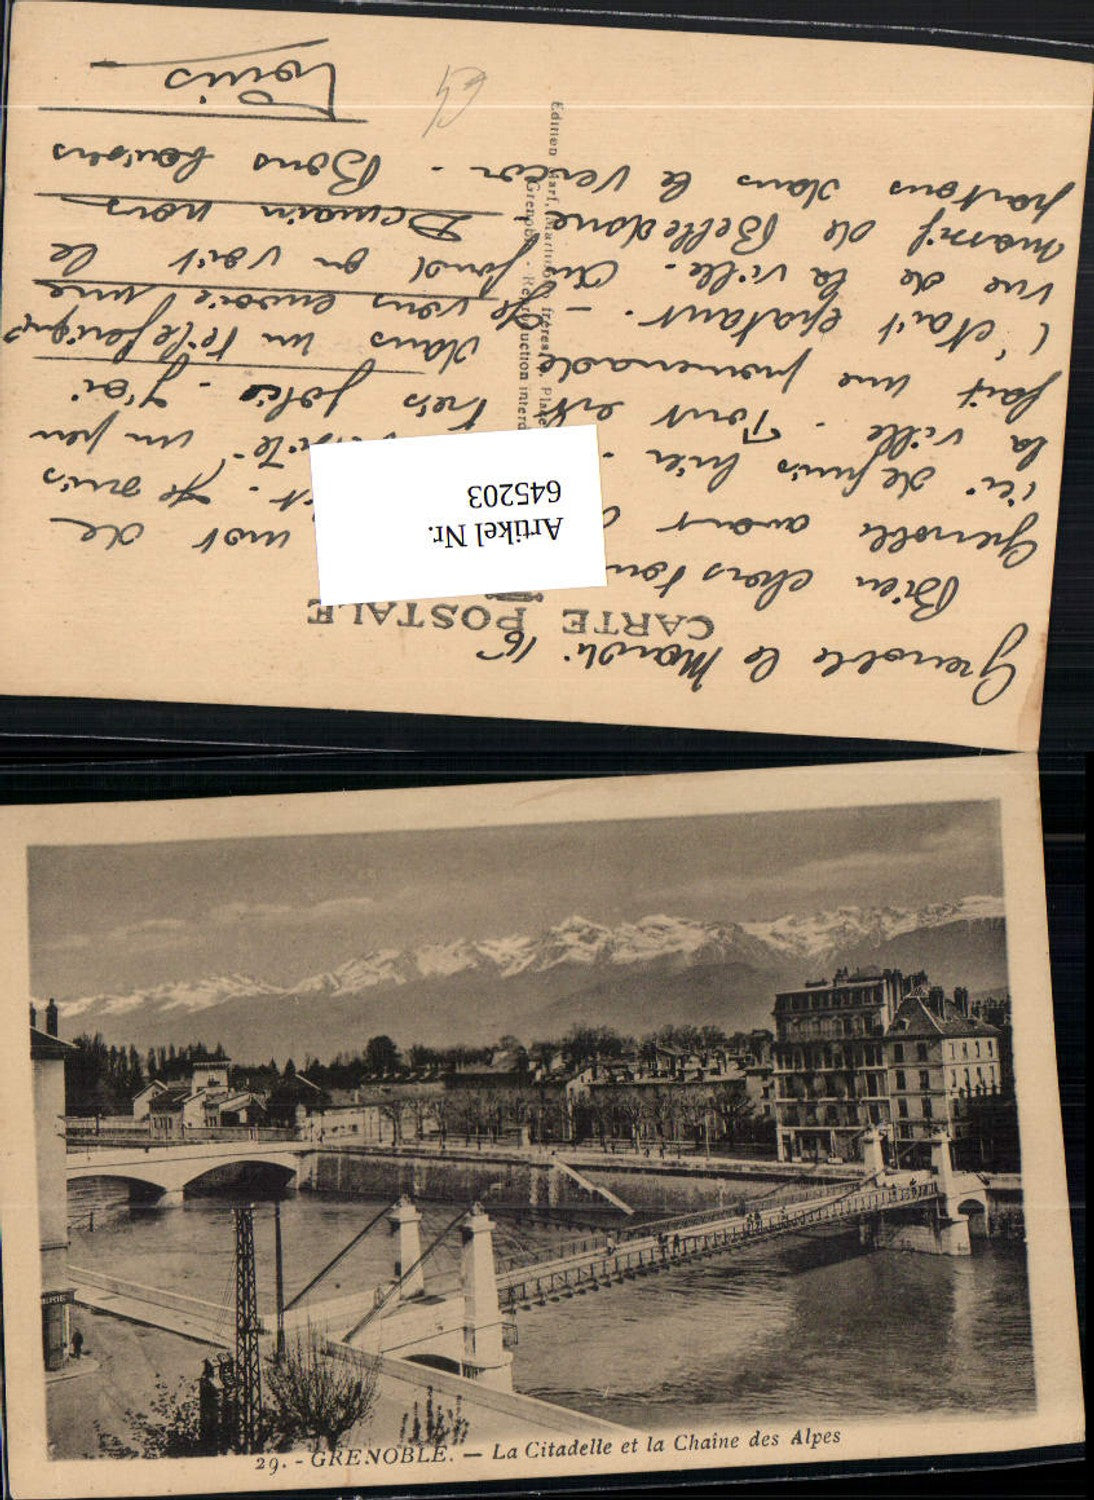 Grenoble le Mardi 16
CARTE POSTALE
Bien chers tous
Grenoble avant mot de
ici depuis hier. Je suis
la ville. visité un peu
Tout est très jolie. J'ai
fait une promenade dans un téléférique
c'était épatant. - Je vous envoie une
vue de la ville. Au fond on voit le
massif de Belledone. Demain nous
partons dans le Vercors. Bons baisers
Louis
Edition Martinotto frères, Place
Grenoble - Reproduction interd
Artikel Nr.
645203
ERIE
29. - GRENOBLE. — La Citadelle et la Chaîne des Alpes